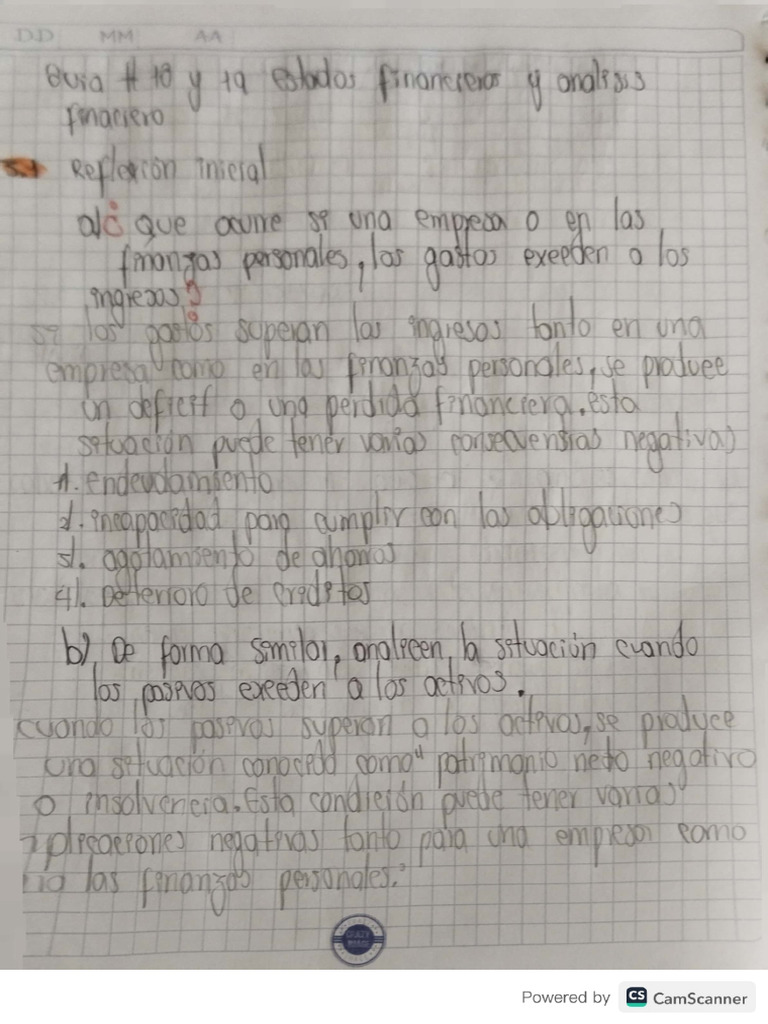 DD MM AA
Guia # 18 y 19 estados financieros y analisis
finaciero
Reflexion inicial
a) ¿ que ocurre si una empresa o en las
finanzas personales, los gastos exeeden a los
ingresos?
si los gastos superan los ingresos tanto en una
empresa como en las finanzas personales, se produce
un deficit o una perdida financiera. esta
situación puede tener varias consecuensias negativas
1. endeudamiento
2. incapacidad para cumplir con las obligaciones
3. agotamiento de ahorros
4. Deterioro de creditos
b), De forma similar, analicen, la situación cuando
los pasivos exceden a los activos.
cuando los pasivos superan a los activos, se produce
una situación conocida como "patrimonio neto negativo
o insolvencia. Esta condición puede tener varias
plicaciones negativas tanto para una empresa como
las finanzas personales."
CRAZY
Powered by CS CamScanner